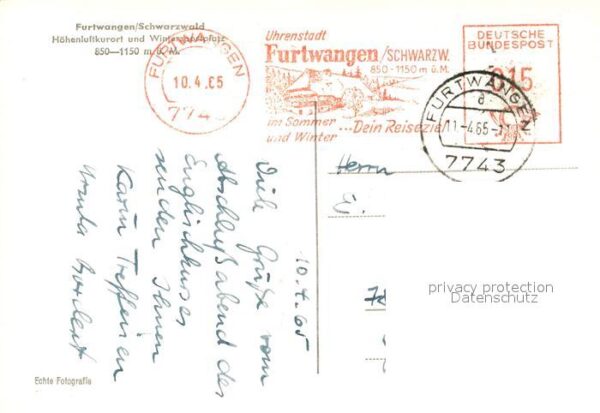 Furtwangen/Schwarzwald
Höhenluftkurort und Wintersportplatz
850—1150 m ü. M.
FURTWANGEN
10.4.65
774
Uhrenstadt
Furtwangen/SCHWARZW.
850-1150 m ü.M.
im Sommer
und Winter ...Dein Reiseziel
DEUTSCHE
BUNDESPOST
015
FURTWANGEN
a
11-4.65-11
7743
10.4.65
Viele Grüße vom
Abschlußabend des
Englischkurses
senden Ihnen
Karin
Ursula
Herrn
privacy protection
Datenschutz
Echte Fotografie